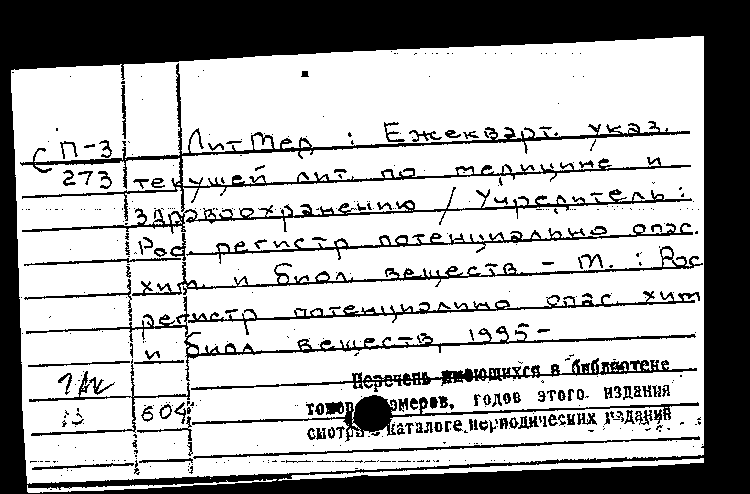 С П-3 ЛитМед : Ежекварт. указ.
273 текущей лит. по медицине и
здравоохранению / Учредитель:
Рос. регистр потенциально опас.
хим. и биол. веществ. - М. : Рос
регистр потенциално опас. хим
и биол веществ, 1995-
Перечень имеющихся в библиотеке
604 томов, номеров, годов этого издания
смотри в каталоге периодических изданий